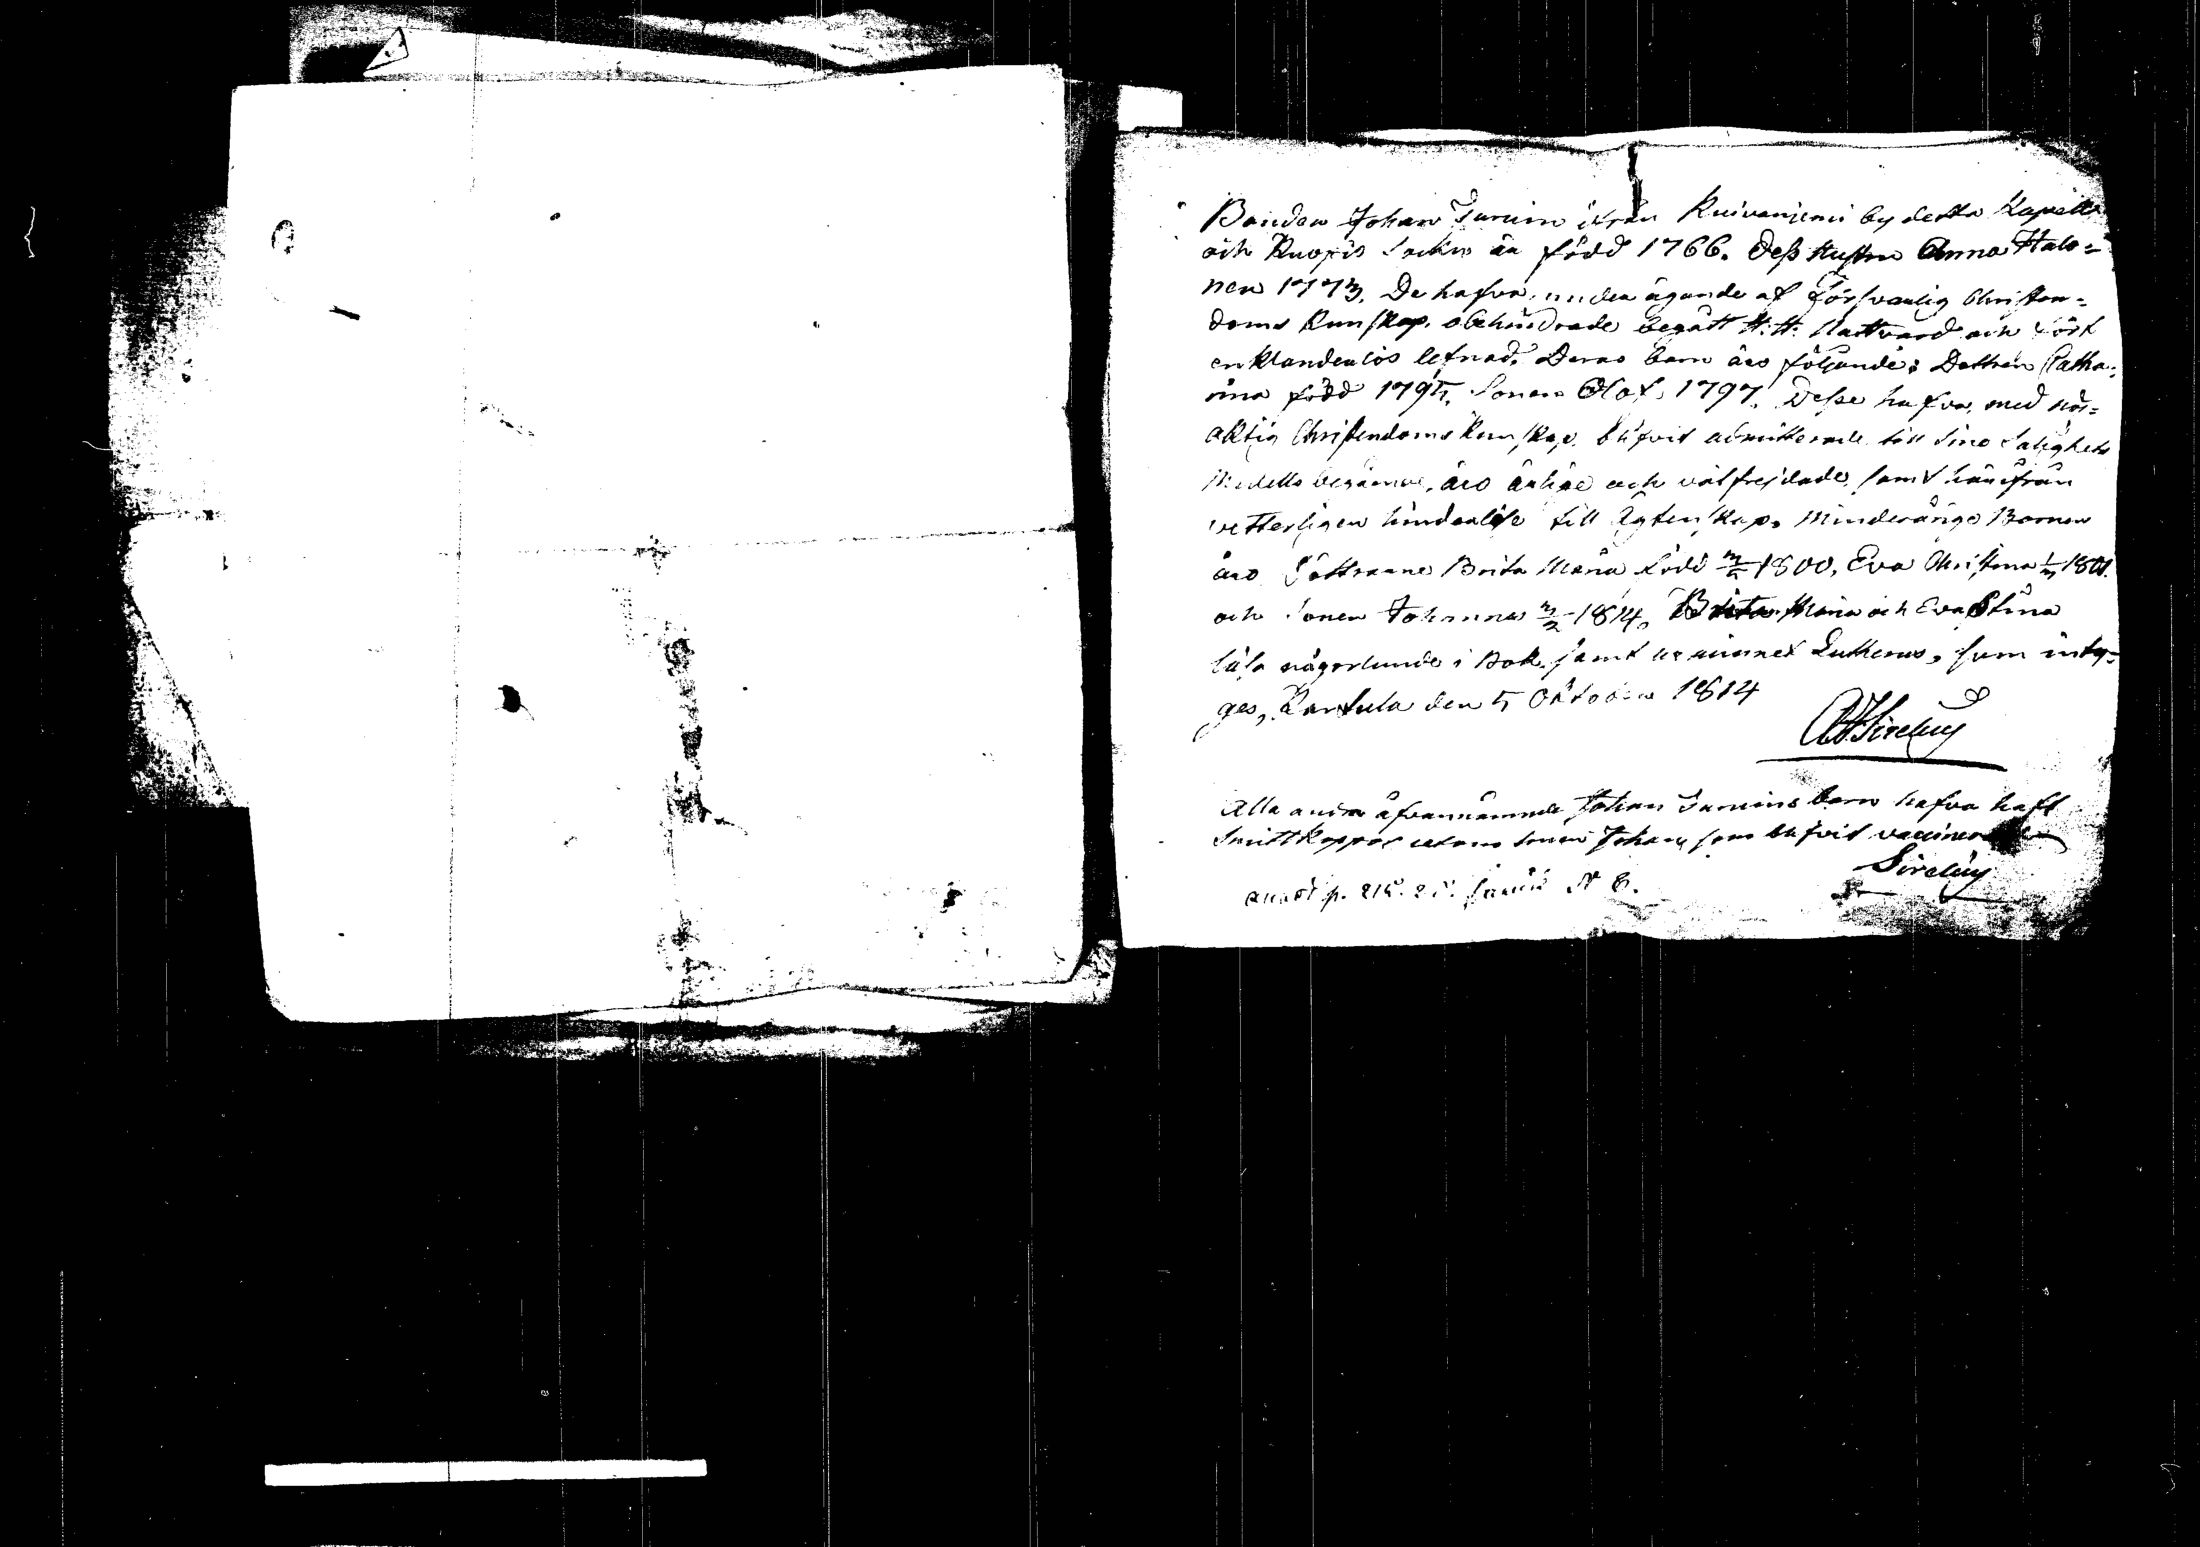 Bonden Johan Jurvin ifrån Kuivanjemi by detta Kapell
och Kuopis Sockn är född 1766. Dess Hustru Anna Halo=
nen 1773. De hafva, under ägande af försvarlig Christen=
doms Kunskap, obehindrade begått H:H: Nattvard och fört
en klanderlös lefnad. Deras barn äro följande: Dottren Catha=
rina född 1795, Sonen Olof 1797. Desse hafva, med nöj=
aktig Christendoms Kunskap blifvit admitterade till sine Salighets
Medels begående, äro ärlige och välfrejdade, samt härifrån
vetterligen hinderlöse till Ägtenskap. Minderårige Barnen
äro Döttrarne Brita Maria född 1800, Eva Christina 1801.
och Sonen Johannes 1814. Brita Maria och Eva Stina
läsa någorlunda i Bok samt utur minnet Lutherus, som inty=
gas, Karttula den 5 October 1814
Sirelius
Alla andra äfvannämnde Johan Jurvins barn hafva haft
Smittkoppor utom sonen Johan, som blifvit vaccinerad
Sirelius
p. 215. N 6.